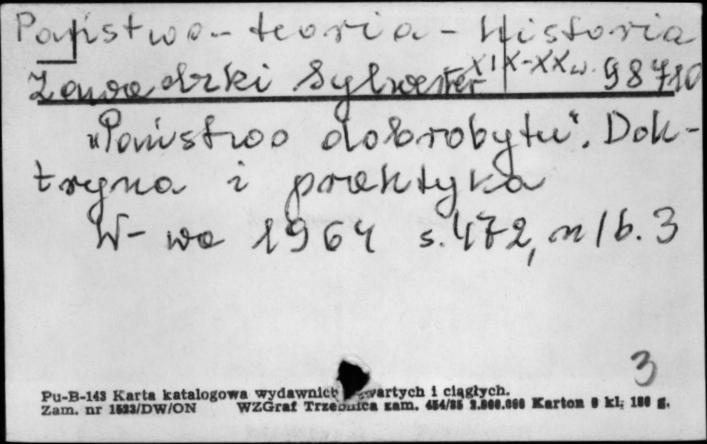 Państwo - teoria - Historia
XIX-XX w.
Zawadzki Sylwester 98710
"Państwo dobrobytu". Dok-
tryna i praktyka
W-wa 1964 s. 472, nlb. 3
3
Pu-B-143 Karta katalogowa wydawnictw zwartych i ciągłych.
Zam. nr 1523/DW/ON WZGraf Trzebnica zam. 454/85 Karton kl. 180 g.